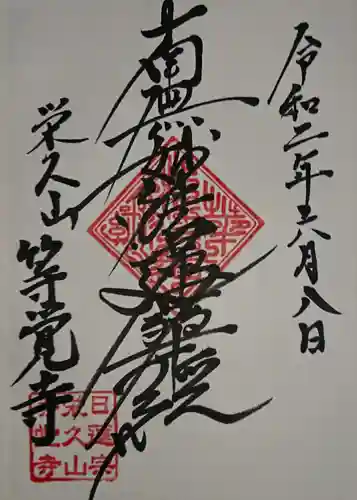 令和二年六月八日
南無妙法蓮華経
栄久山
等覚寺
日蓮宗
栄久山
等覚寺